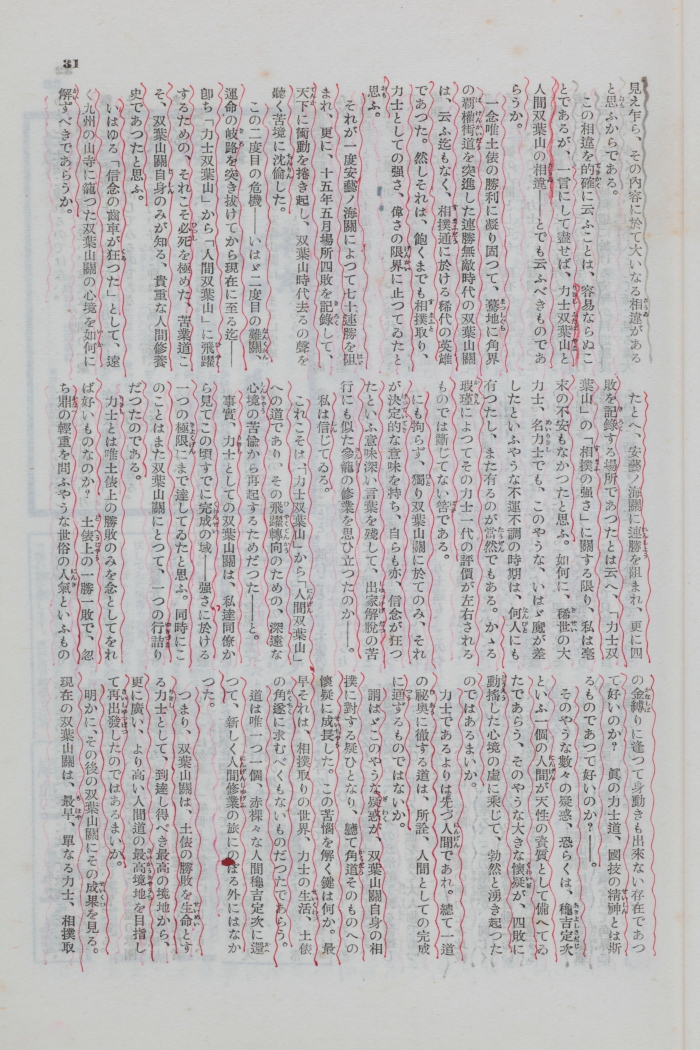 31
見え乍ら、その內容に於て大いなる相違がある
と思ふからである。
この相違を的確に云ふことは、容易ならぬこ
とであるが、一言にして盡せば、力士双葉山と
人間双葉山の相違――とでも云ふべきものであ
らうか。
一念唯土俵の勝利に凝り固つて、驀地に角界
の覇權街道を突進した連勝無敵時代の双葉山關
は、云ふ迄もなく、相撲道に於ける稀代の英雄
であつた。然しそれは、飽くまでも相撲取り、
力士としての强さ、偉さの限界に止つてゐたと
思ふ。
それが一度安藝ノ海關によつて七十連勝を阻
まれ、更に、十五年五月場所四敗を記錄して、
天下に衝動を捲き起し、双葉山時代去るの聲を
聽く苦境に沈淪した。
この二度目の危機――いはゞ二度目の難關、
運命の岐路を突き拔けてから現在に至る迄――
卽ち「力士双葉山」から「人間双葉山」に飛躍
するための、それこそ必死を極めた、苦業道こ
そ、双葉山關自身のみが知る、貴重な人間修養
史であつたと思ふ。
いはゆる「信念の齒車が狂つた」として、遠
く九州の山寺に籠つた双葉山關の心境を如何に
解すべきであらうか。
たとへ、安藝ノ海關に連勝を阻まれ、更に四
敗を記錄する場所であつたとは云へ、「力士双
葉山」の「相撲の强さ」に關する限り、私は毫
末の不安もなかつたと思ふ。如何に、稀世の大
力士、名力士でも、このやうな、いはゞ魔が差
したといふやうな不運不調の時期は、何人にも
有つたし、また有るのが當然でもある。かゝる
瑕瑾によつてその力士一代の評價が左右される
ものでは斷じてない筈である。
にも拘らず、獨り双葉山關に於てのみ、それ
が決定的な意味を持ち、自らも亦、信念が狂つ
たといふ意味深い言葉を殘して、出家解脫の苦
行にも似た參籠の修業を思ひ立つたのか――。
私は信じてゐる。
これこそは「力士双葉山」から「人間双葉山」
への道であり、その飛躍轉向のための、深遠な
心境の苦惱から再起するためだつた――と。
事實、力士としての双葉山關は、私達同僚か
ら見てこの頃すでに完成の域――强さに於ける
一つの極限にまで達してゐたと思ふ。同時にこ
のことはまた双葉山關にとつて、一つの行詰り
だつたのである。
力士とは唯土俵上の勝敗のみを念としてをれ
ば好いものなのか? 土俵上の一勝一敗で、忽
ち鼎の輕重を問ふやうな世俗の人氣といふもの
の金縛りに逢つて身動きも出來ない存在であつ
て好いのか? 眞の力士道、國技の精神とは斯
るものであつて好いのか?――。
そのやうな數々の疑惑、恐らくは、龝吉定次
といふ一個の人間が天性の資質として備へてゐ
たであらう、そのやうな大きな懷疑が、四敗に
動搖した心境の虛に乘じて、勃然と湧き起つた
のではあるまいか。
力士であるよりは先づ人間であれ。總て一道
の祕奥に徹する道は、所詮、人間としての完成
に通ずるものではないか。
謂はゞこのやうな疑惑が、双葉山關自身の相
撲に對する疑ひとなり、聽て角道そのものへの
懷疑に成長した。この苦惱を解く鍵は何か。最
早それは、相撲取りの世界、力士の生活、土俵
の角逐に求むべくもないものだつたであらう。
道は唯一つ一個、赤裸々な人間龝吉定次に還
つて、新しく人間修業の旅にのぼる外にはなか
つた。
つまり、双葉山關は、土俵の勝敗を生命とす
る力士として、到達し得べき最高の境地から、
更に廣い、より高い人間道の最高境地を目指し
て再出發したのではあるまいか。
明かに、その後の双葉山關にその成果を見る。
現在の双葉山關は、最早、單なる力士、相撲取